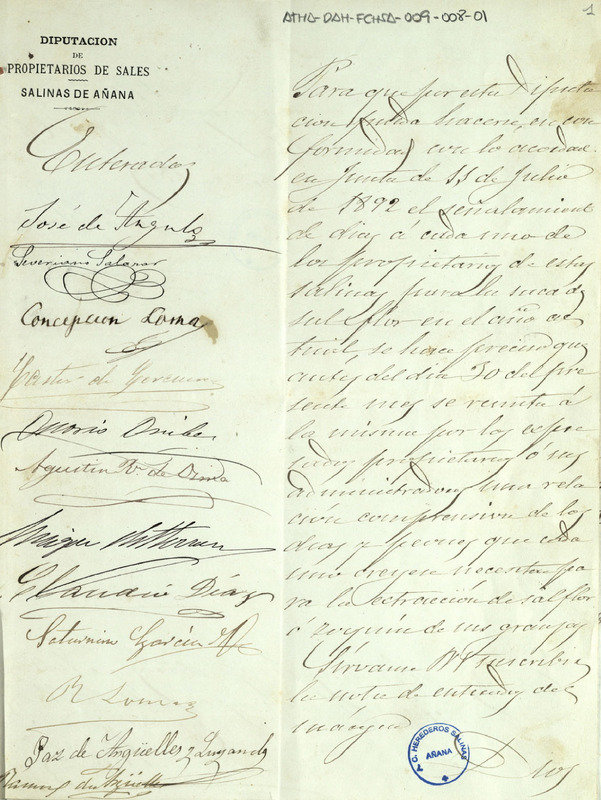 ATHA-DAH-FCHSA-009-008-01
1
DIPUTACION
DE
PROPIETARIOS DE SALES
SALINAS DE AÑANA
Enterados
José de Angulo
Severiano Salazar
Concepcion Loma
Castor de
Agustin de
Claudio Díaz
Saturnino García
R Loma
Paz de Argüelles y Luyando
Para que por esta Diputa
cion pueda hacerse, en con
formidad con lo acordado
en Junta de 11 de Julio
de 1892 el señalamiento
de dias á cada uno de
los propietarios de estas
salinas para la saca de
sal flor en el año ac
tual, se hace preciso que
antes del dia 30 del pre
sente mes se remita á
la misma por los expre
sados propietarios ó sus
administradores una rela
ción comprensiva de los
dias y peones que cada
uno creyere necesitar pa
ra la extracción de sal flor
ó zoquín de sus granjas
Sírvanse Vds suscribir
la nota de enterados del
margen
Dios
C. HEREDEROS SALINAS
AÑANA